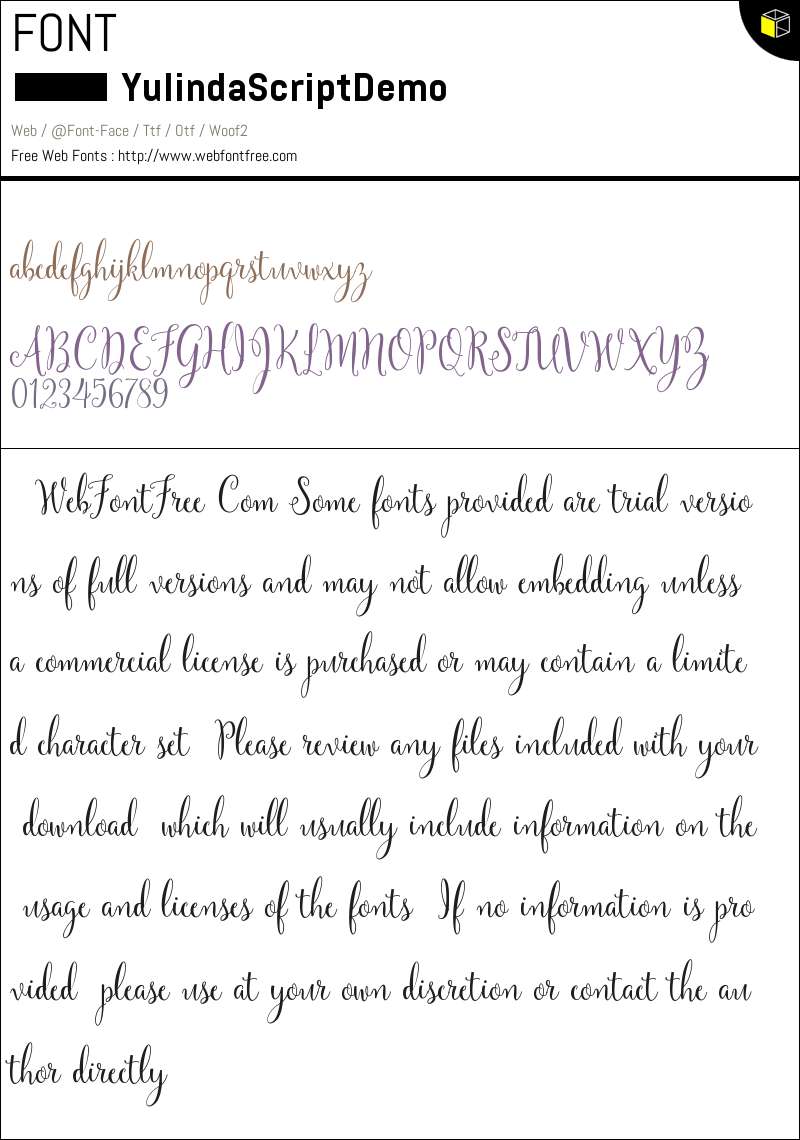 FONT
YulindaScriptDemo
Web / @Font-Face / Ttf / Otf / Woof2
Free Web Fonts : http://www.webfontfree.com
abcdefghijklmnopqrstuvwxyz
ABCDEFGHIJKLMNOPQRSTUVWXYZ
0123456789
WebFontFree Com Some fonts provided are trial versio
ns of full versions and may not allow embedding unless
a commercial license is purchased or may contain a limite
d character set Please review any files included with your
download which will usually include information on the
usage and licenses of the fonts If no information is pro
vided please use at your own discretion or contact the au
thor directly